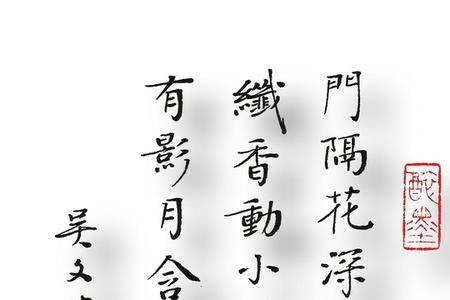 門隔花深
纖香動小
有影月含
吳文